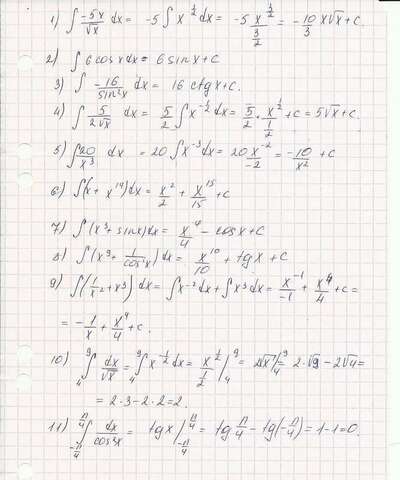 1) ∫ -5x/√x dx = -5 ∫ x^(1/2) dx = -5 x^(3/2)/(3/2) = -10/3 x√x + c.
2) ∫ 6 cos x dx = 6 sin x + c
3) ∫ -16/sin²x dx = 16 ctg x + c.
4) ∫ 5/(2√x) dx = 5/2 ∫ x^(-1/2) dx = 5/2 · x^(1/2)/(1/2) + c = 5√x + c.
5) ∫ 20/x³ dx = 20 ∫ x^(-3) dx = 20 x^(-2)/(-2) = -10/x² + c
6) ∫ (x + x^14) dx = x²/2 + x^15/15 + c
7) ∫ (x³ + sin x) dx = x^4/4 - cos x + c
8) ∫ (x^9 + 1/cos²x) dx = x^10/10 + tg x + c
9) ∫ (1/x² + x³) dx = ∫ x^(-2) dx + ∫ x³ dx = x^(-1)/(-1) + x^4/4 + c =
= -1/x + x^4/4 + c.
10) ₄∫⁹ dx/√x = ₄∫⁹ x^(-1/2) dx = x^(1/2)/(1/2) |₄⁹ = 2√x |₄⁹ = 2·√9 - 2√4 =
= 2·3 - 2·2 = 2.
11) ∫_(-π/4)^(π/4) dx/cos²x = tg x |_(-π/4)^(π/4) = tg π/4 - tg(-π/4) = 1 - 1 = 0.